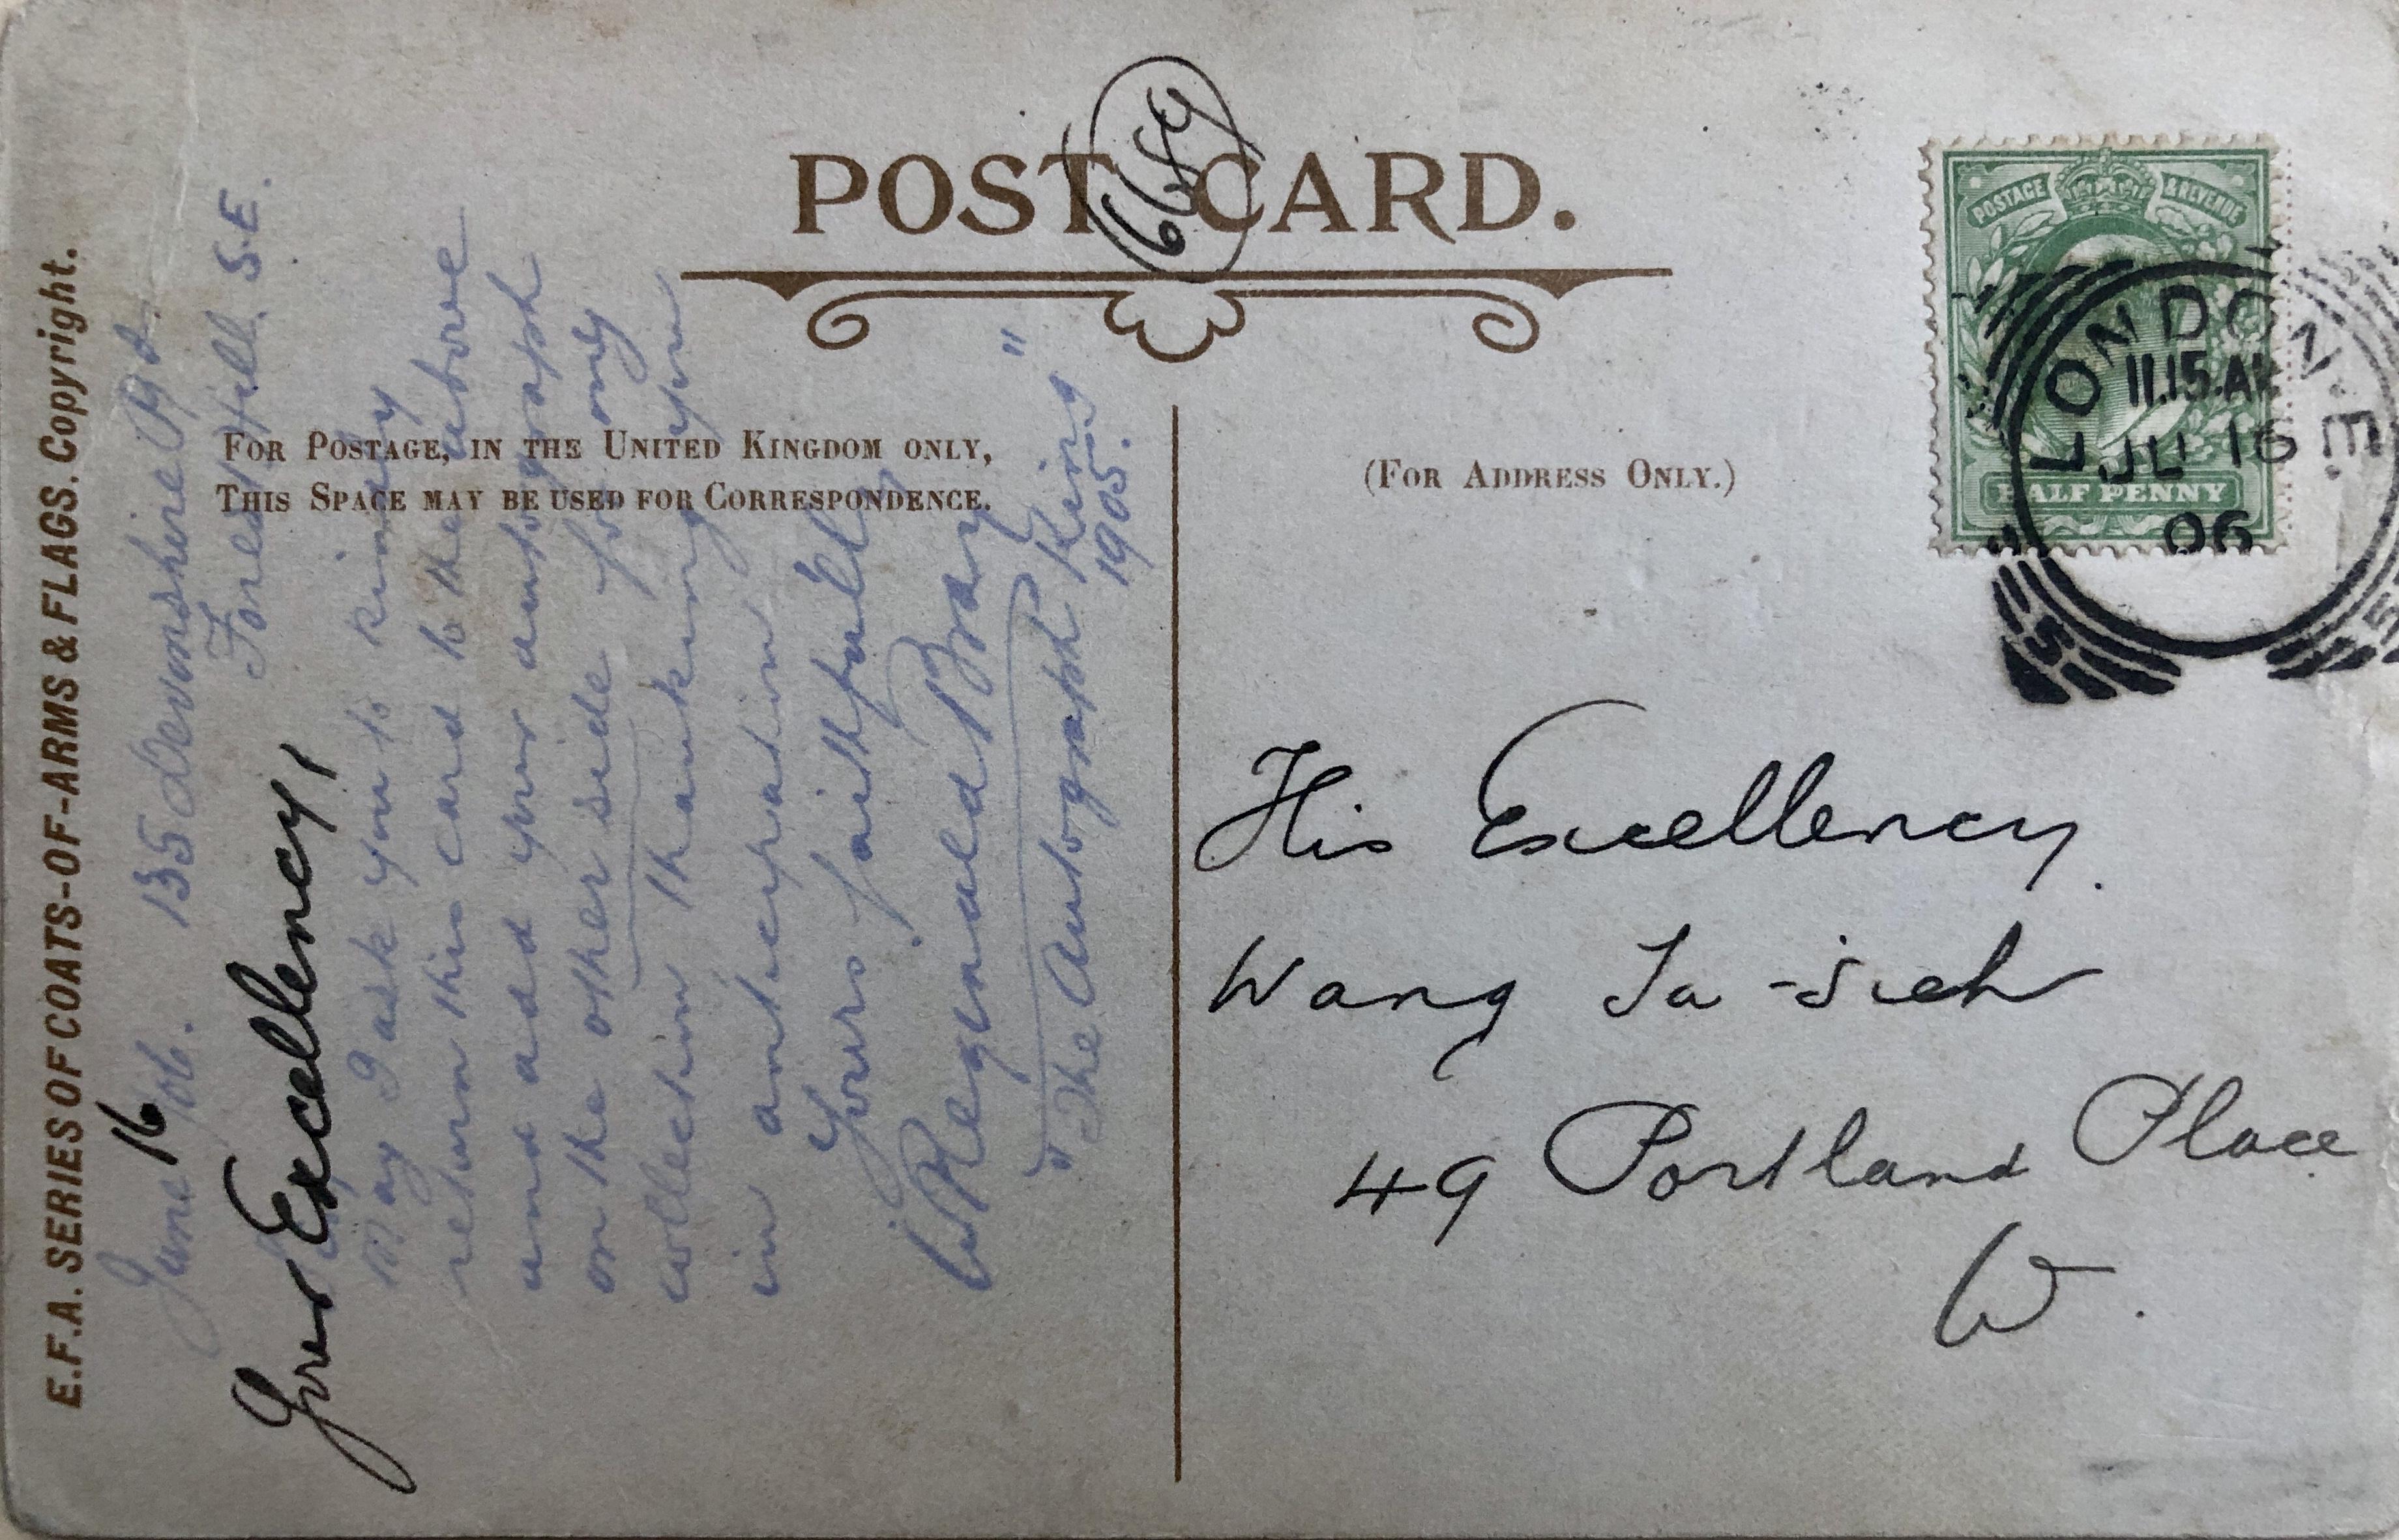 POST CARD.
6689
FOR POSTAGE, IN THE UNITED KINGDOM ONLY,
THIS SPACE MAY BE USED FOR CORRESPONDENCE.
(FOR ADDRESS ONLY.)
E.F.A. SERIES OF COATS-OF-ARMS & FLAGS. Copyright.
June 16/06. 135 Devonshire Rd
Forest Hill. S.E.
Your Excellency,
May I ask you to kindly
return this card to the above
and add your autograph
on the other side for my
collection thanking you
in anticipation
Yours faithfully
W Reginald Bray
"The Autograph King"
1905.
POSTAGE & REVENUE
HALF PENNY
LONDON. S.E.
11.15.AM
JU 16
06
His Excellency.
Wang Ta-sieh
49 Portland Place
W.